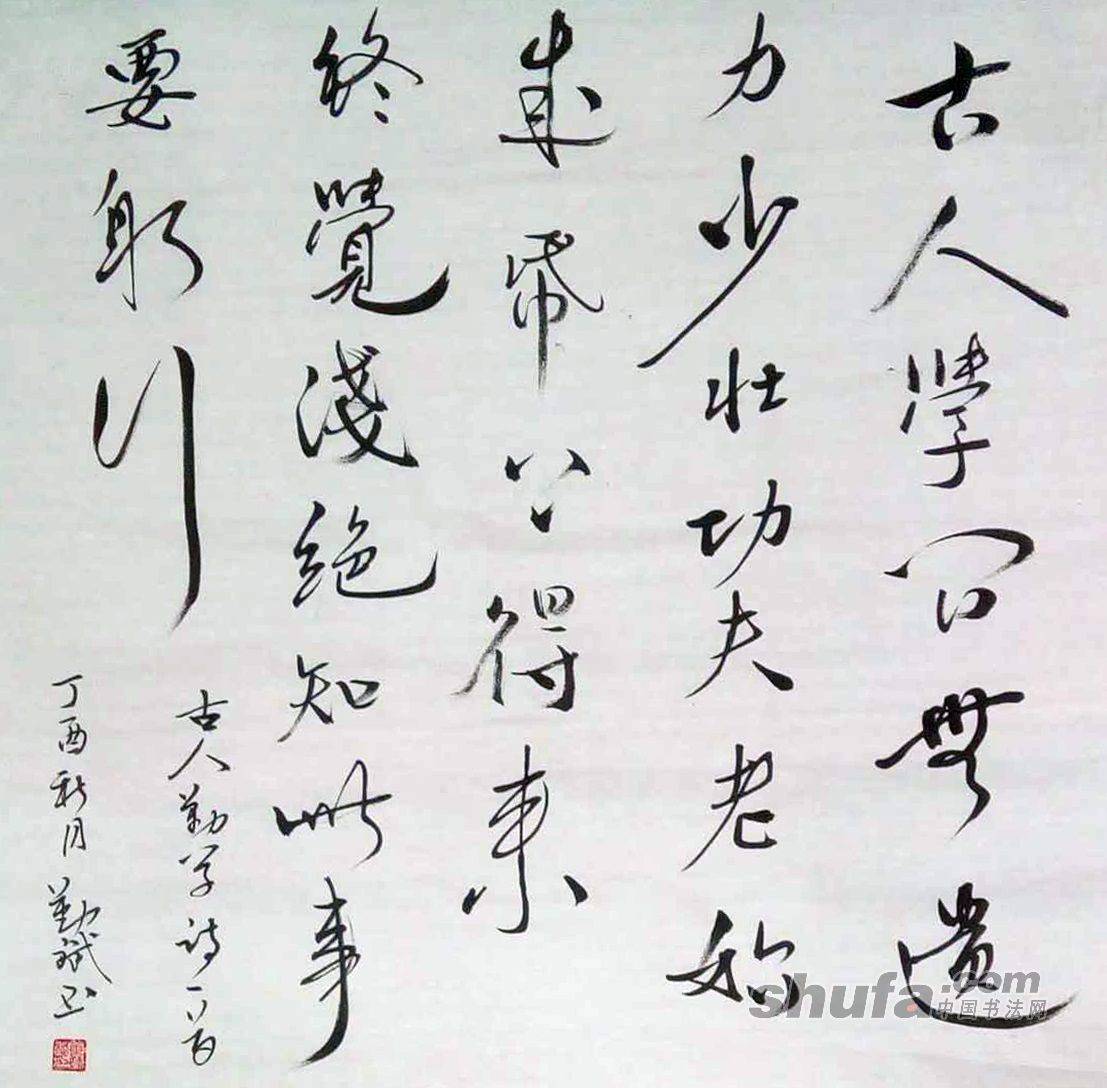 古人學問無遺
力少壮功夫老始
成帋上得来
終覺淺絶知此事
要躬行
古人勤学诗一首
丁酉秋月勤斌书
shufa.com
中国书法网